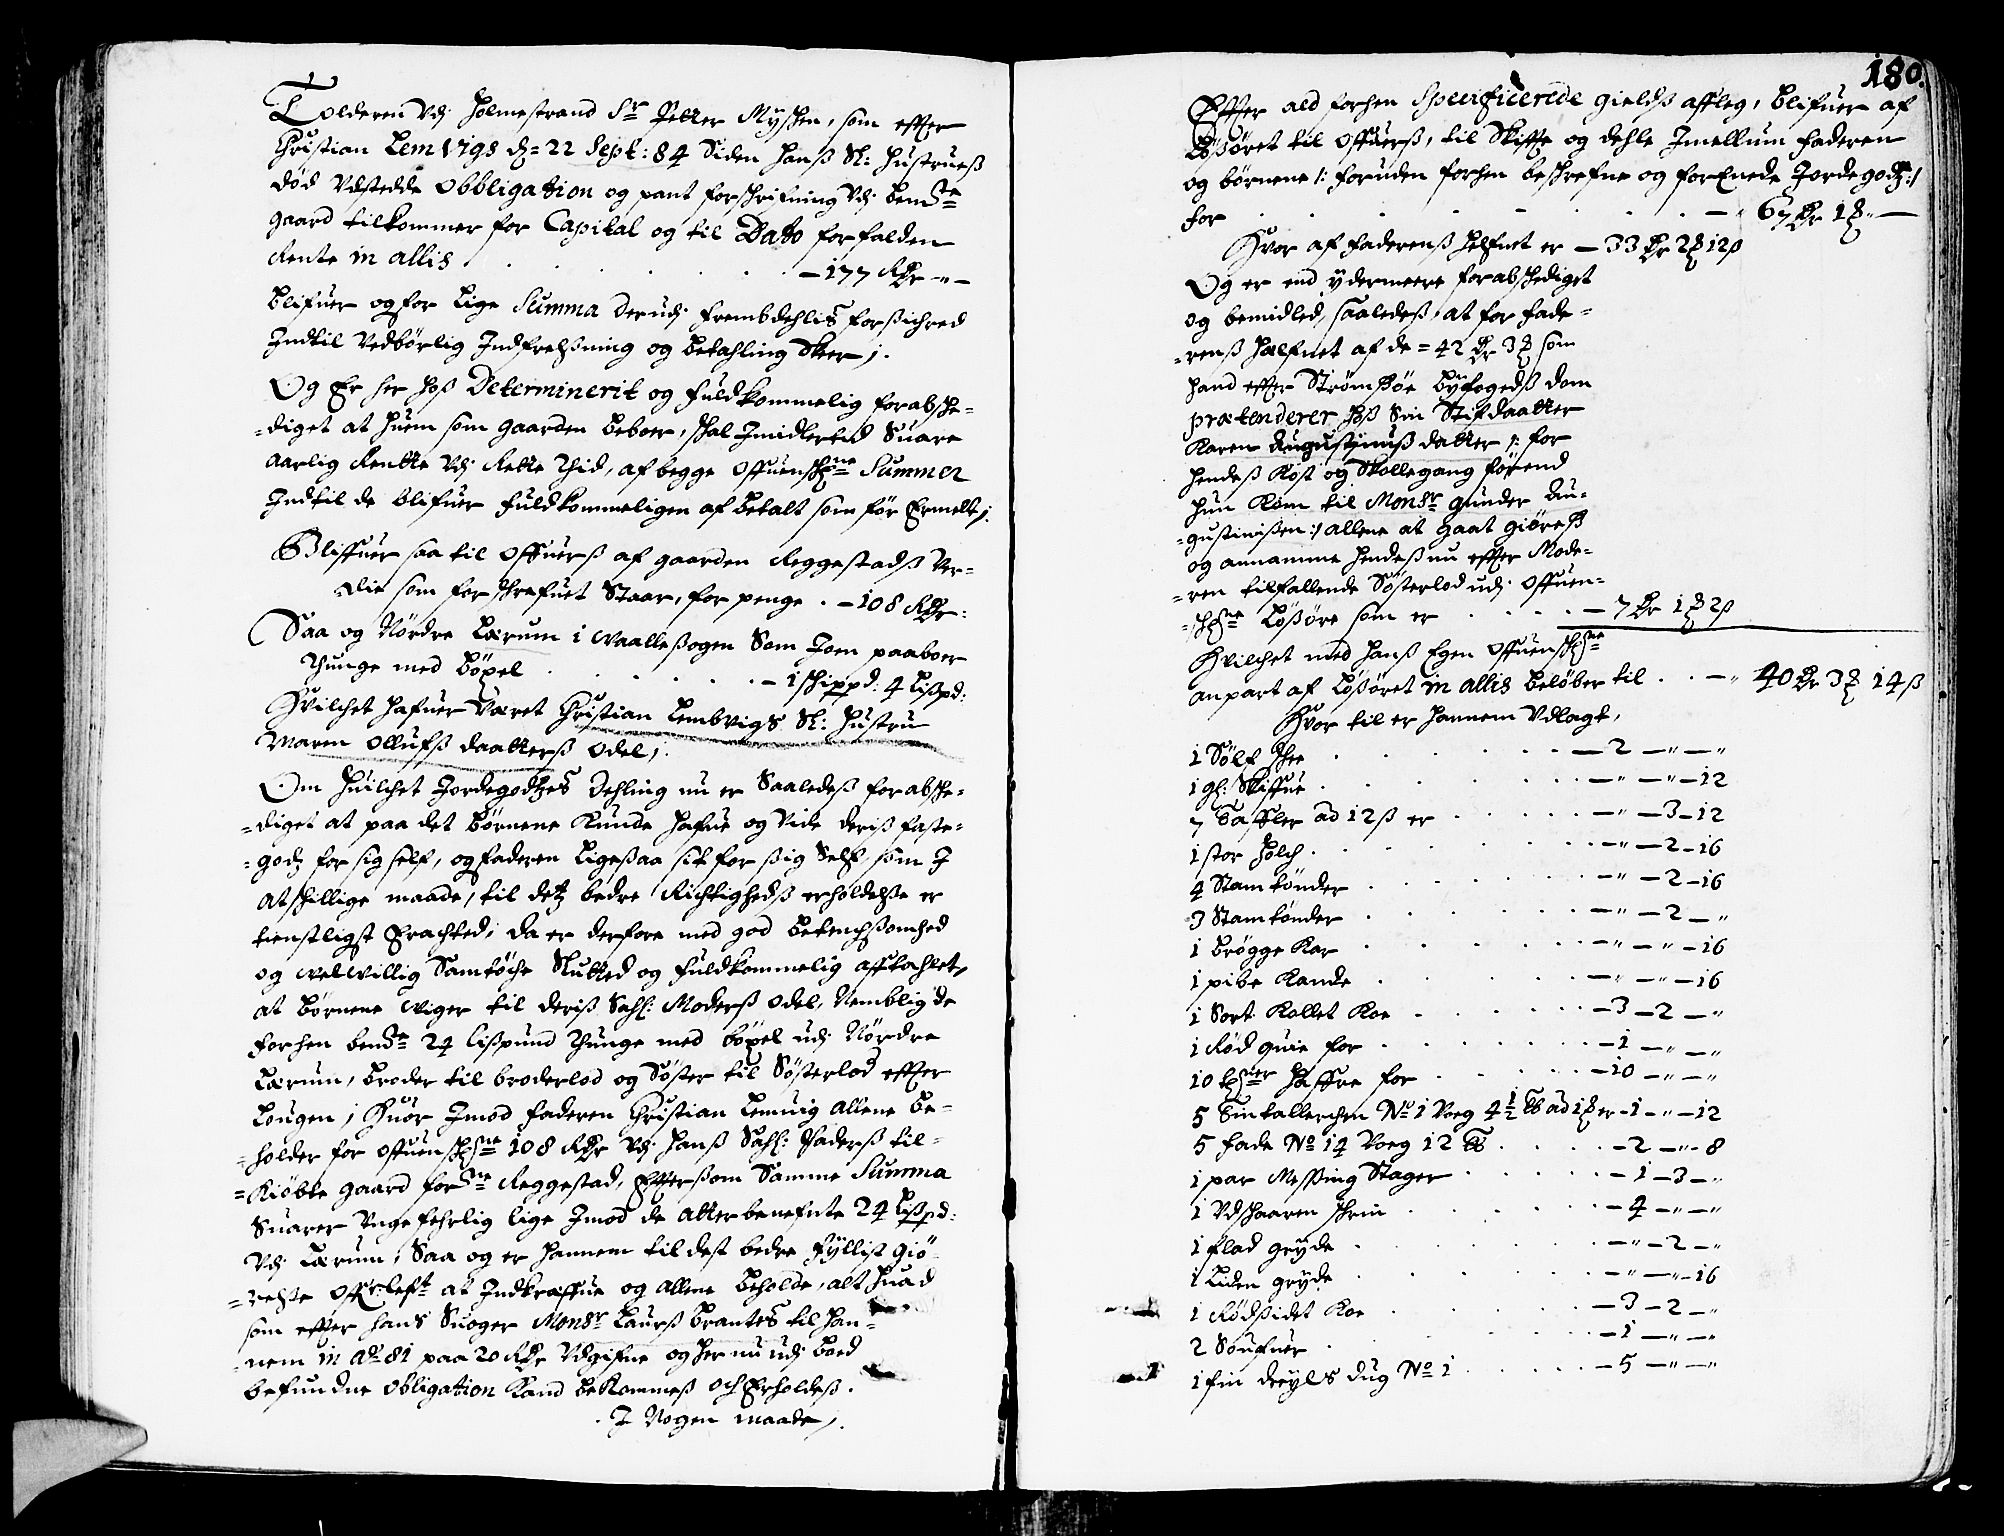 Tolderen Udj Holmestrand Sr Petter Myhen, som effter
Christian Lemvigs d: 22 Sept: 84 Siden hanß Sl: hustrueß
død Udstedde Obbligation og pant forschrifning Udj bemdte
gaard tilkommer for Capital og til Dato forfalden
Rente in allis . . . . . . . – 177 RDr –"–
blifuer og for lige Summa derudj frembdehlis forsichred
Indtil Vedbørlig Indfrelßning og betahling Skeer ;.
Og Er her hoß Determinerit og fuldkommelig forabsche-
=diget at huem som gaarden beboer, schal Imidlertid Suare
aarlig Rentte Udj Rette Thid, af begge offuenschrne Summer
Indtil de blifuer fuldkommeligen afbetalt som før Ermelt ;.
Bliffuer saa til offuerß af gaarden Reggestadß Ver-
die som forschrefuet Staar, for penge . – 108 RDr:
Saa og Nørdre Lærum i Waalleßogen Som Joen paaboer
Thunge med bøxel . . . . . . – 1 schippd: 4 Lißpd:
Huilchet hafuer Været Christian Lembvigs Sl: hustru
Maren Ollufß daatterß odel ;.
Om huilchet Jordegodtzes dehling nu er Saaledeß forabsche-
=diget at paa det børnene kunde hafue og Vide deriß faste-
=godtz for sig self, og faderen ligeßaa sit for ßig Self, som I
atschillige maade, til detz bedre Richtighedß erholdelße er
tienstligst Erachted, da er derfore med god betenchßomhed
og welwillig Samtøche Slutted og fuldkommelig afftahlet,
at børnene Wiger til deriß Sahl: Moderß odel, Nemblig de
forhen bemdte 24 lißpund Thunge med bøxel udj Nørdre
Lærum, broder til broderlod og Søster til Søsterlod effter
Lougen ; Huor Imod faderen Christian Lemuig allene be-
=holder for offuenschrne 108 RDr Udj hanß Sahl: faderß til-
=kiøbte gaard forne Reggestad, Effterßom Samme Summa
Suarer Ungefehrlig lige Imod de atterbenefnte 24 Lißpd:
Udj Lærum, Saa og er hannem til dest bedre fyllist giø-
=relße offr:left at Indkræffue og allene beholde, alt huad
som effter hans Suoger Monsr Laurß Brantes til han-
=nem in Ao 81 paa 20 RDr Udgifne og her nu udj boed
befundne obligation kand bekommeß och Erholdeß.
I Nogen maade ;.
180.
Effter ald forhen Specificerede gieldß affleg, blifuer af
Løßøret til offuerß, til Skiffte og dehle Imellum faderen
og børnene /: foruden forhen beschrefne og forEnede Jordegodtz :/
for . . . . . . . . . – " 67 Dr 1 ß "–
Huor af faderenß helfuet er – 33 Dr 2 ß 12 ß
Og er end ydermeere forabschediget
og bemidled, saaledeß, at for fade-
=renß halfuet af de = 42 Dr 3 ß som
hand effter Strømßøe byfogedß dom
prætenderer hoß Sin Stifdaatter
Karen Augustinuß datter /: for
hendeß kost og Skollegang førend
hun kom til Monsr gunder Au-
=gustinißen :/ allene at gaat giøreß
og annamme hendeß nu effter Mode-
=ren tilfallende Søsterlod udj offuen-
=schrne Løßøre som er . . . . – 7 Dr 1 ß 2 ß
Huilchet med hanß Egen offuenschrne
anpart af Løßøret in allis beløber til . . – " 40 Dr 3 ß 14 ß
Huor til er hannem Udlagt,
1 Sølf schee . . . . . . – 2 – " – "
1 gl: Skiffue . . . . . . – " – " – 12
7 Taffler ad 12 ß er . . . . . – " – 3 – 12
1 stor holch . . . . . . – " – 2 – 16
4 Stamtønder . . . . . – " – 2 – 16
3 Stamtønder . . . . . – " – 2 – "
1 brøgge kar . . . . . – " – " – 16
1 pibe kande . . . . . – " – " – 16
1 Sort kollet koe . . . . . – 3 – 2 – "
1 Rød quie for . . . . . – 1 – " – "
10 tdner haffre for . . . . . – 10 – " – "
5 Tintallerchen No 1 Voeg 4 1/2 ℔ ad 1 ß er – 1 – " – 12
5 fade No 14 Voeg 12 ℔ . . . . – 2 – " – 8
1 par Messing Stager . . . . – 1 – 3 – "
1 Udschaaren schrin . . . . – 4 – " – "
1 flad gryde . . . . . – " – 2 – "
1 Liden gryde . . . . . – " – " – 16
1 Rødßidet koe . . . . . – 3 – 2 – "
2 Soufuer . . . . . – 1 – " – "
1 fin dreyls dug No 1 . . . . – 5 – " – "